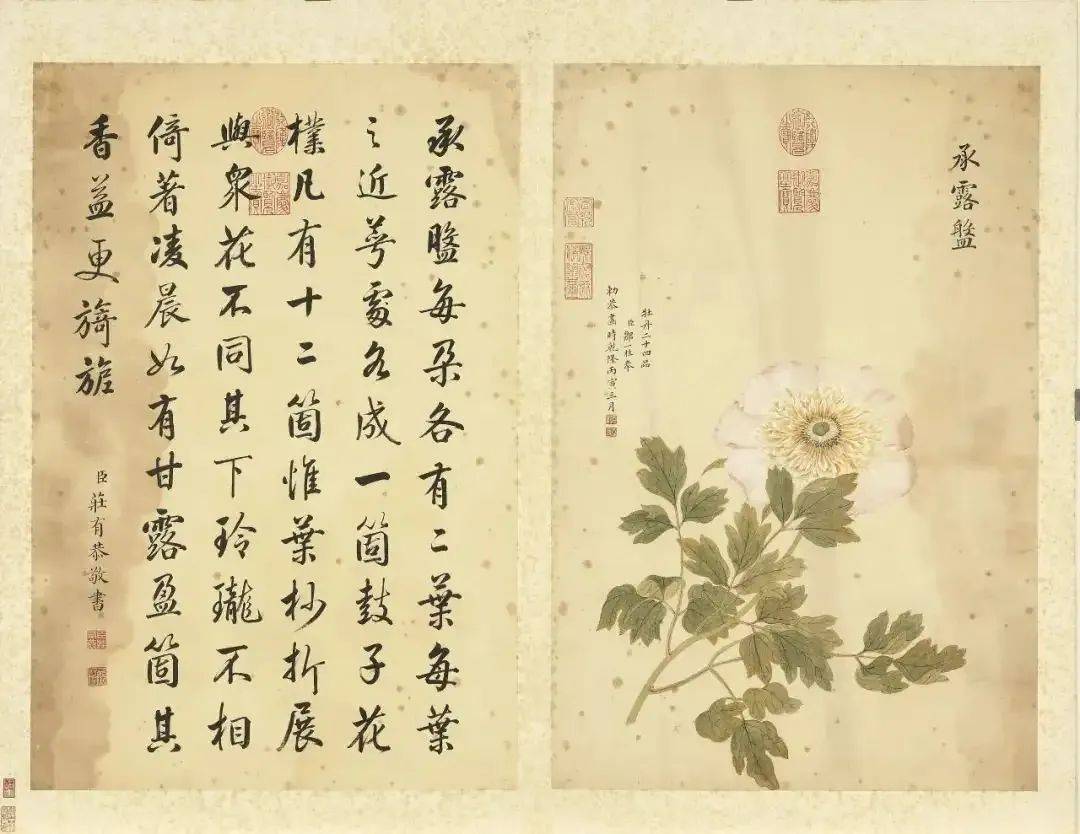 承露盤
牡丹二十四品
臣鄒一桂奉
勅恭畫時乾隆丙寅三月
承露盤每朵各有二葉每葉
之近萼處各成一箇鼓子花
樸凡有十二箇惟葉杪折展
與衆花不同其下玲瓏不相
倚著凌晨如有甘露盈箇其
香益更旖旎
臣莊有恭敬書